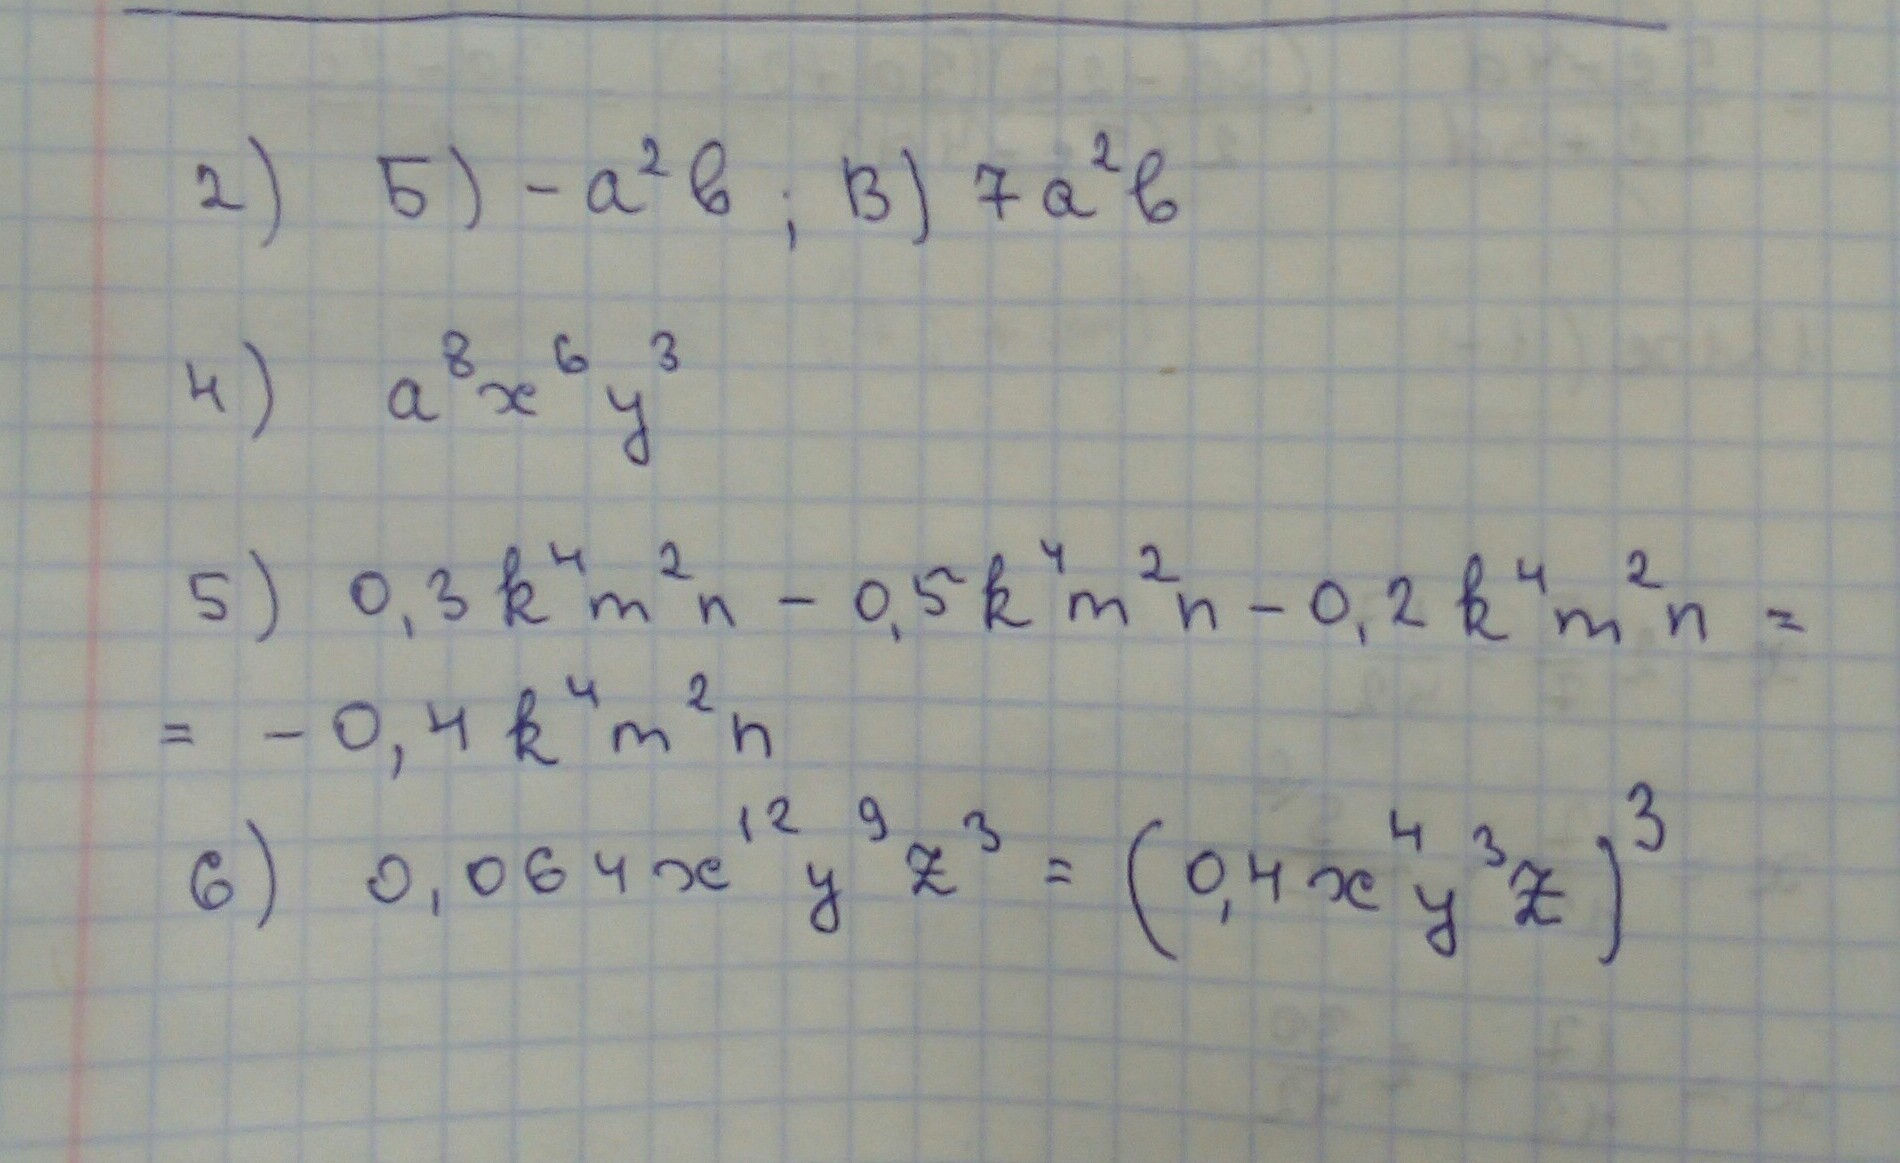 2) Б) -a²b ; В) 7a²b
4) a⁸x⁶y³
5) 0,3k⁴m²n - 0,5k⁴m²n - 0,2k⁴m²n =
= -0,4k⁴m²n
6) 0,064x¹²y⁹z³ = (0,4x⁴y³z)³